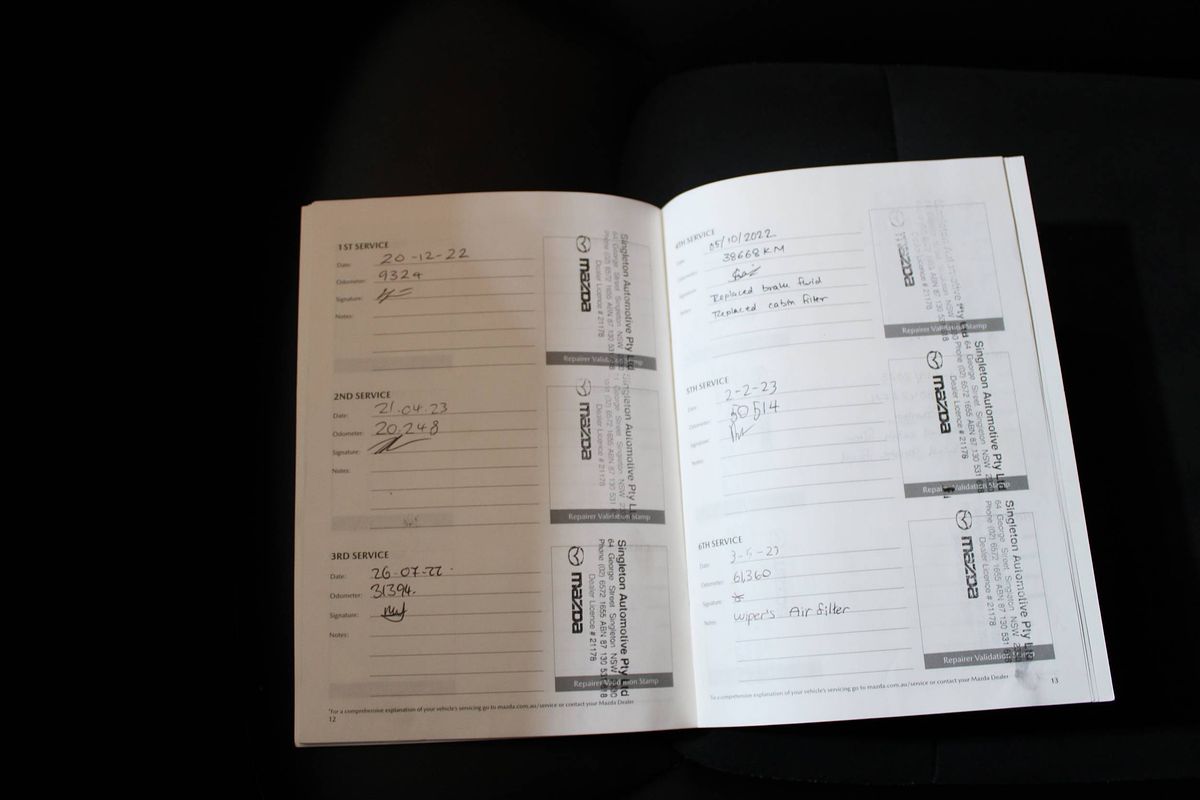 1ST SERVICE
Date: 20-12-22
Odometer: 9324
Signature:
Notes:
mazda
Singleton Automotive Pty Ltd
64 George Street Singleton NSW
Phone (02) 6572 1655 ABN 87 130 531
Dealer Licence # 21178
Repairer Validation Stamp
2ND SERVICE
Date: 21.04.23
Odometer: 20.248
Signature:
Notes:
mazda
Singleton Automotive Pty
64 George Street Singleton NSW
Phone (02) 6572 1655 ABN 87 130 531
Dealer Licence # 21178
Repairer Validation Stamp
3RD SERVICE
Date: 26-07-22.
Odometer: 31394.
Signature:
Notes:
mazda
Singleton Automotive Pty Ltd
64 George Street Singleton NSW
Phone (02) 6572 1655 ABN 87 130 531
Dealer Licence # 21178
Repairer Validation Stamp
*For a comprehensive explanation of your vehicle's servicing go to mazda.com.au/service or contact your Mazda Dealer
12
4TH SERVICE
Date: 05/10/2022
Odometer: 38668 KM
Signature:
Replaced brake fluid
Notes: Replaced cabin filter
mazda
Repairer Validation Stamp
5TH SERVICE
Date: 2-2-23
Odometer: 50514
Signature:
Notes:
mazda
Singleton Automotive Pty Ltd
64 George Street Singleton NSW
Phone (02) 6572 1655 ABN 87 130 531
Dealer Licence # 21178
Repairer Validation Stamp
6TH SERVICE
Date: 3-5-23
Odometer: 61,360
Signature:
Notes: wiper's Air filter
mazda
Singleton Automotive Pty Ltd
64 George Street Singleton NSW
Phone (02) 6572 1655 ABN 87 130 531
Dealer Licence # 21178
Repairer Validation Stamp
*For a comprehensive explanation of your vehicle's servicing go to mazda.com.au/service or contact your Mazda Dealer
13